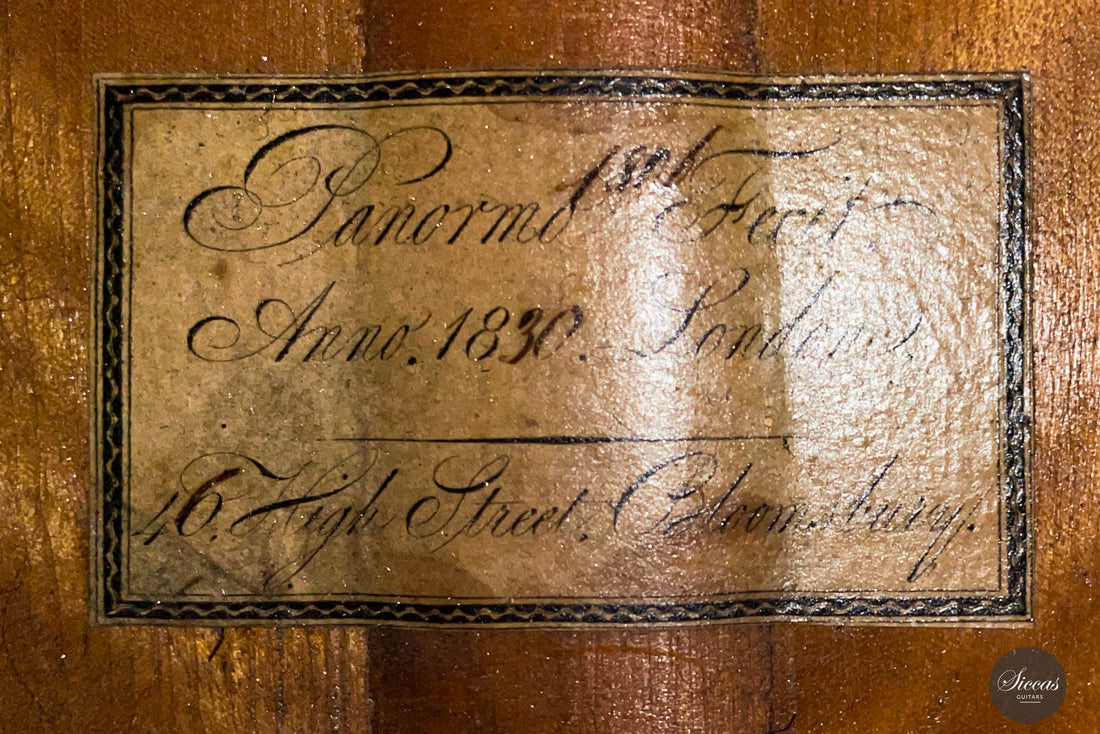 Panormo Fecit
Anno. 1830. London,
46. High Street, Bloomsbury.
Siccas
GUITARS